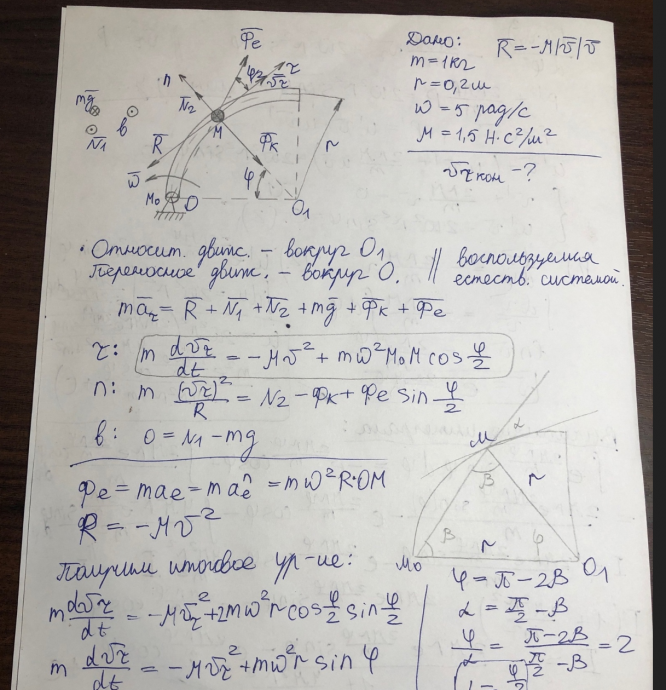 Дано:
R̄ = -μ|v̄|v̄
m = 1 кг
r = 0,2 м
ω = 5 рад/с
μ = 1,5 Н·с²/м²
v̄r кон - ?
Φ̄e
n
N̄2
φ/2
τ
v̄r
mḡ
b
N̄1
M
R̄
Φ̄k
r
ω̄
φ
M0
O
O1
Относит. движ. – вокруг O1
Переносное движ. – вокруг O.
воспользуемся
естеств. системой.
mār = R̄ + N̄1 + N̄2 + mḡ + Φ̄k + Φ̄e
τ: m dvr/dt = -μv² + mω²M0M cos φ/2
n: m (vr)²/R = N2 - Φk + Φe sin φ/2
b: 0 = N1 - mg
Φe = mae = maeⁿ = mω²R·OM
R = -μv²
M
α
β
r
β
r
φ
M0
O1
Получим итоговое ур-ие:
m dvr/dt = -μvr² + 2mω²r cos φ/2 sin φ/2
m dvr/dt = -μvr² + mω²r sin φ
φ = π - 2β
α = π/2 - β
φ/α = (π - 2β)/(π/2 - β) = 2